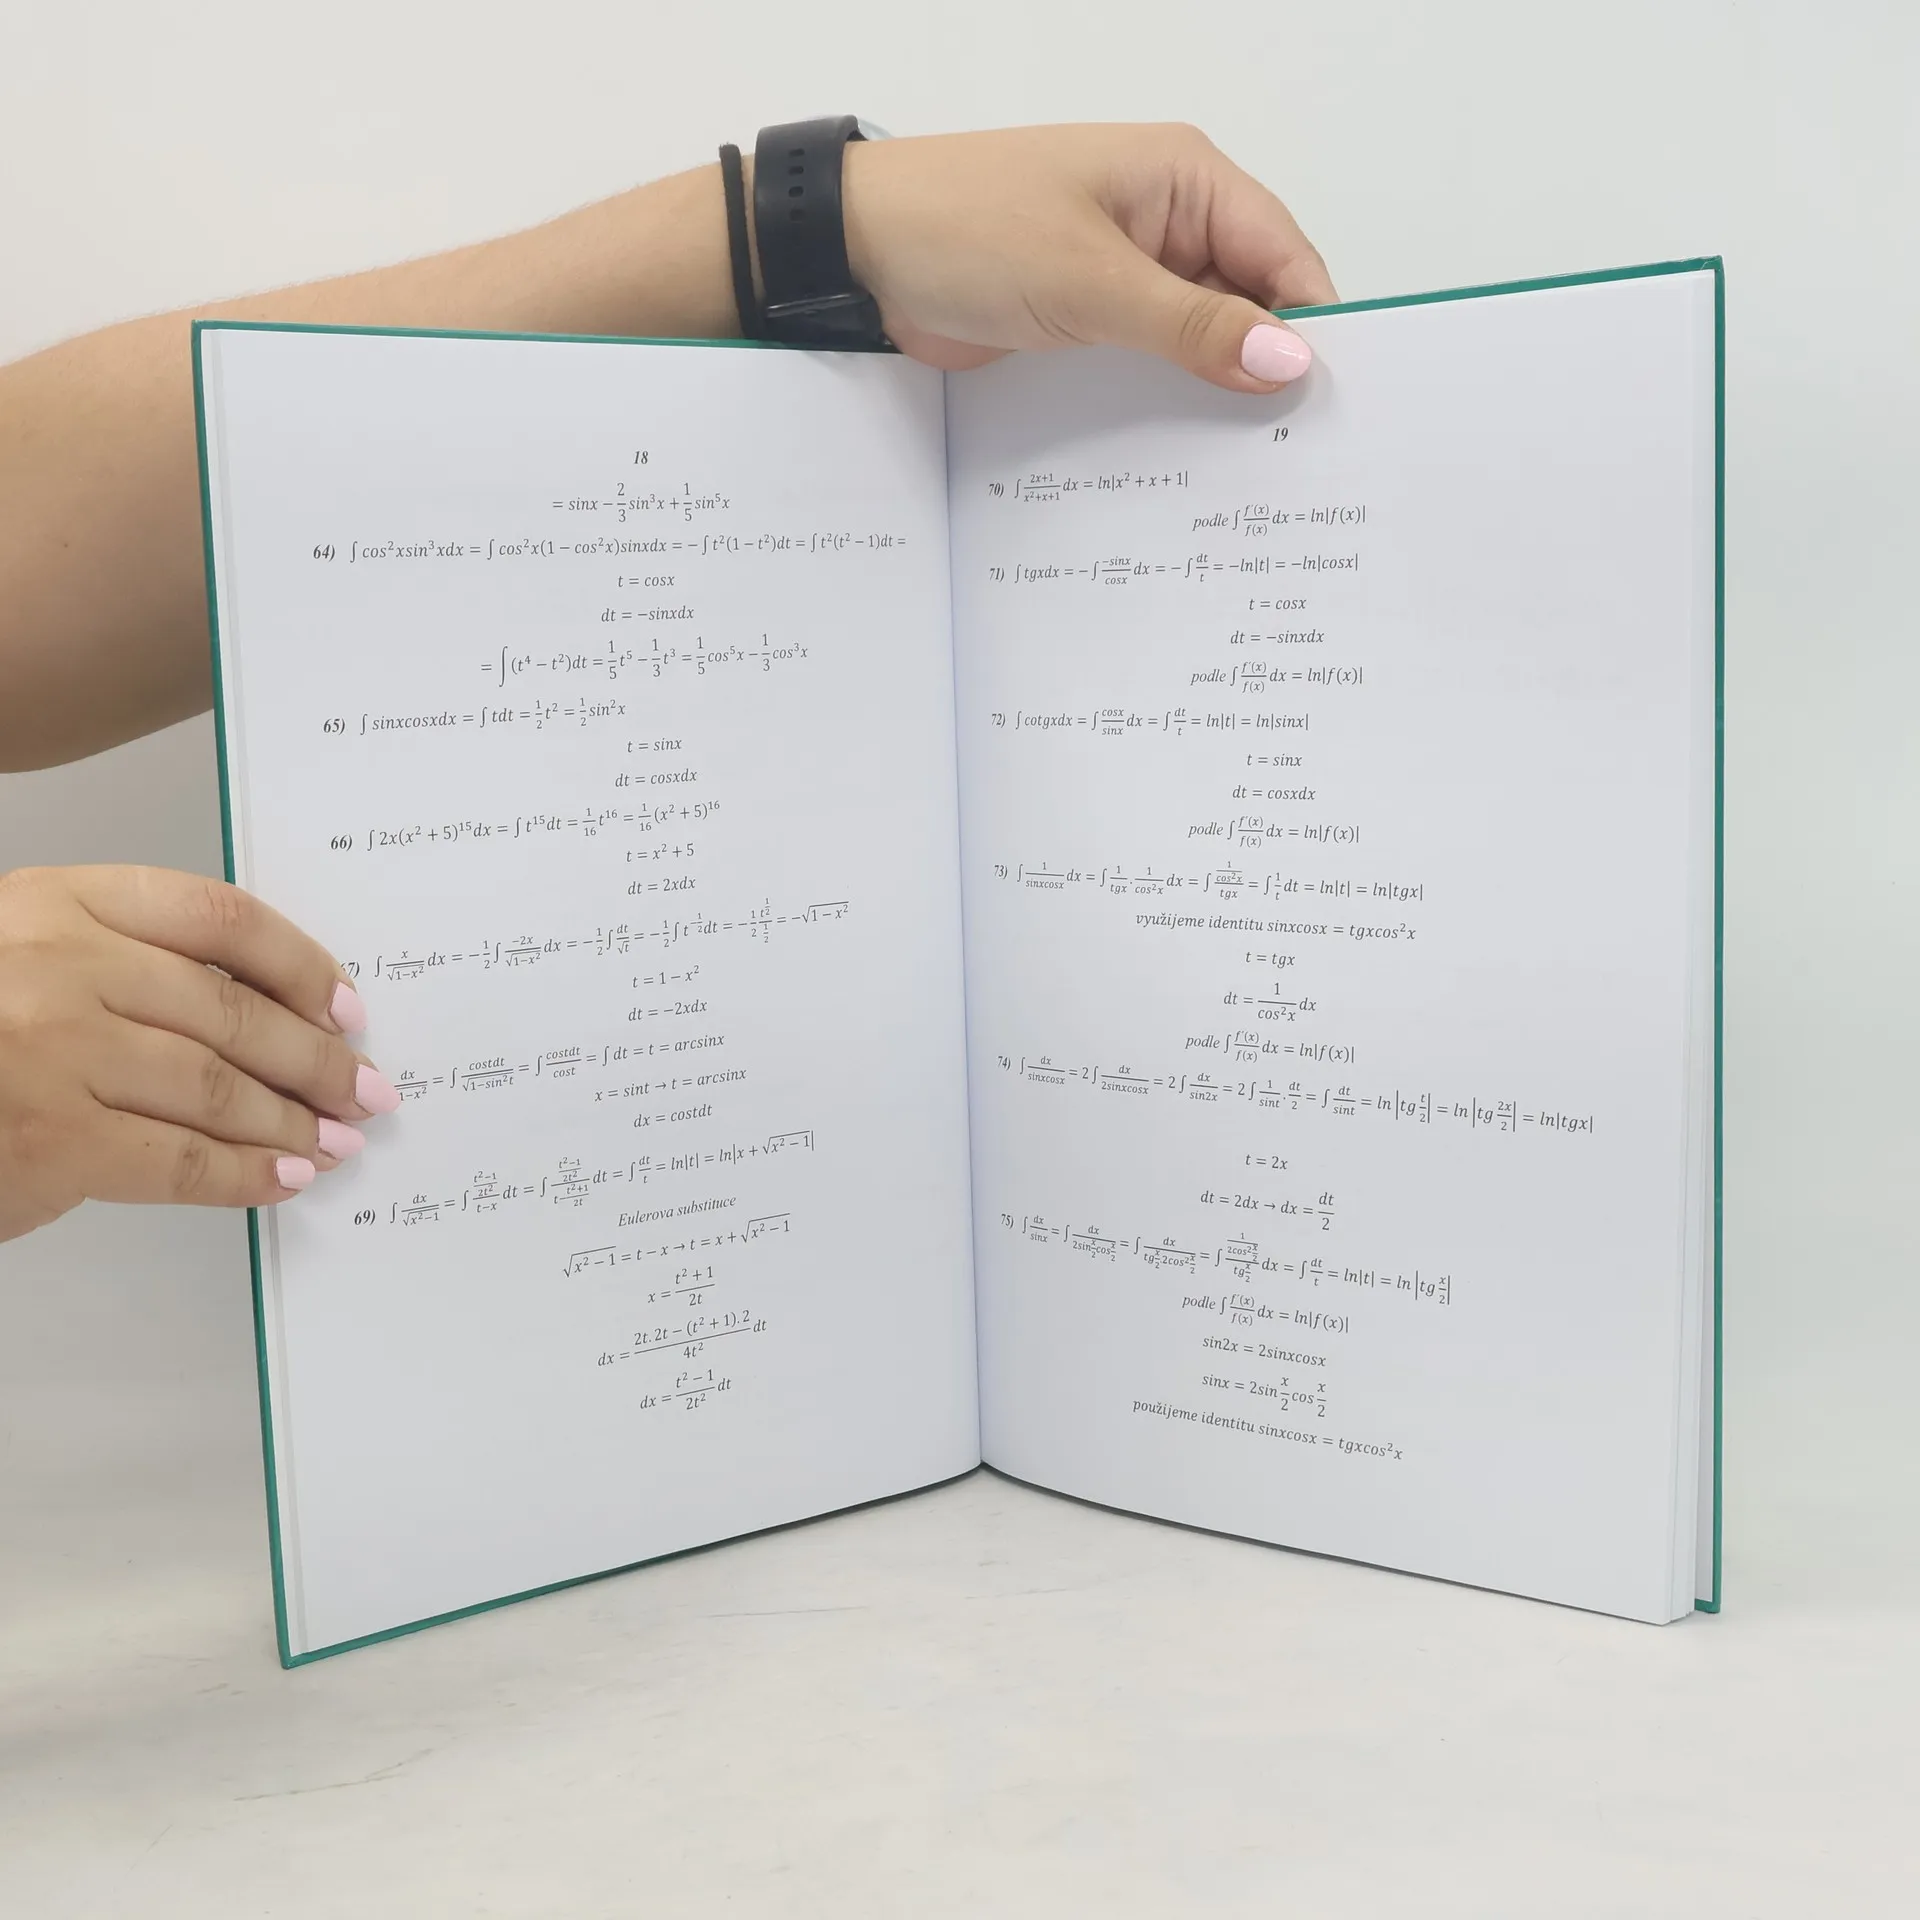 18
= sinx − 2/3 sin³x + 1/5 sin⁵x
64) ∫ cos²xsin³xdx = ∫ cos²x(1 − cos²x)sinxdx = − ∫ t²(1 − t²)dt = ∫ t²(t² − 1)dt =
t = cosx
dt = −sinxdx
= ∫ (t⁴ − t²)dt = 1/5 t⁵ − 1/3 t³ = 1/5 cos⁵x − 1/3 cos³x
65) ∫ sinxcosxdx = ∫ tdt = 1/2 t² = 1/2 sin²x
t = sinx
dt = cosxdx
66) ∫ 2x(x² + 5)¹⁵dx = ∫ t¹⁵dt = 1/16 t¹⁶ = 1/16 (x² + 5)¹⁶
t = x² + 5
dt = 2xdx
7) ∫ x/√(1−x²) dx = − 1/2 ∫ −2x/√(1−x²) dx = − 1/2 ∫ dt/√t = − 1/2 ∫ t^(−1/2) dt = − 1/2 t^(1/2)/(1/2) = −√(1 − x²)
t = 1 − x²
dt = −2xdx
dx/1−x² = ∫ costdt/√(1−sin²t) = ∫ costdt/cost = ∫ dt = t = arcsinx
x = sint → t = arcsinx
dx = costdt
69) ∫ dx/√(x²−1) = ∫ ((t²−1)/2t²)/(t−x) dt = ∫ ((t²−1)/2t²)/(t−(t²+1)/2t) dt = ∫ dt/t = ln|t| = ln|x + √(x² − 1)|
Eulerova substituce
√(x² − 1) = t − x → t = x + √(x² − 1)
x = (t² + 1)/2t
dx = (2t. 2t − (t² + 1). 2)/4t² dt
dx = (t² − 1)/2t² dt
19
70) ∫ (2x+1)/(x²+x+1) dx = ln|x² + x + 1|
podle ∫ f′(x)/f(x) dx = ln|f(x)|
71) ∫ tgxdx = − ∫ −sinx/cosx dx = − ∫ dt/t = −ln|t| = −ln|cosx|
t = cosx
dt = −sinxdx
podle ∫ f′(x)/f(x) dx = ln|f(x)|
72) ∫ cotgxdx = ∫ cosx/sinx dx = ∫ dt/t = ln|t| = ln|sinx|
t = sinx
dt = cosxdx
podle ∫ f′(x)/f(x) dx = ln|f(x)|
73) ∫ 1/sinxcosx dx = ∫ 1/tgx . 1/cos²x dx = ∫ (1/cos²x)/tgx = ∫ 1/t dt = ln|t| = ln|tgx|
využijeme identitu sinxcosx = tgxcos²x
t = tgx
dt = 1/cos²x dx
podle ∫ f′(x)/f(x) dx = ln|f(x)|
74) ∫ dx/sinxcosx = 2 ∫ dx/2sinxcosx = 2 ∫ dx/sin2x = 2 ∫ 1/sint . dt/2 = ∫ dt/sint = ln |tg t/2| = ln |tg 2x/2| = ln|tgx|
t = 2x
dt = 2dx → dx = dt/2
75) ∫ dx/sinx = ∫ dx/(2sin x/2 cos x/2) = ∫ dx/(tg x/2 .2cos² x/2) = ∫ (1/(2cos² x/2))/(tg x/2) dx = ∫ dt/t = ln|t| = ln |tg x/2|
podle ∫ f′(x)/f(x) dx = ln|f(x)|
sin2x = 2sinxcosx
sinx = 2sin x/2 cos x/2
použijeme identitu sinxcosx = tgxcos²x